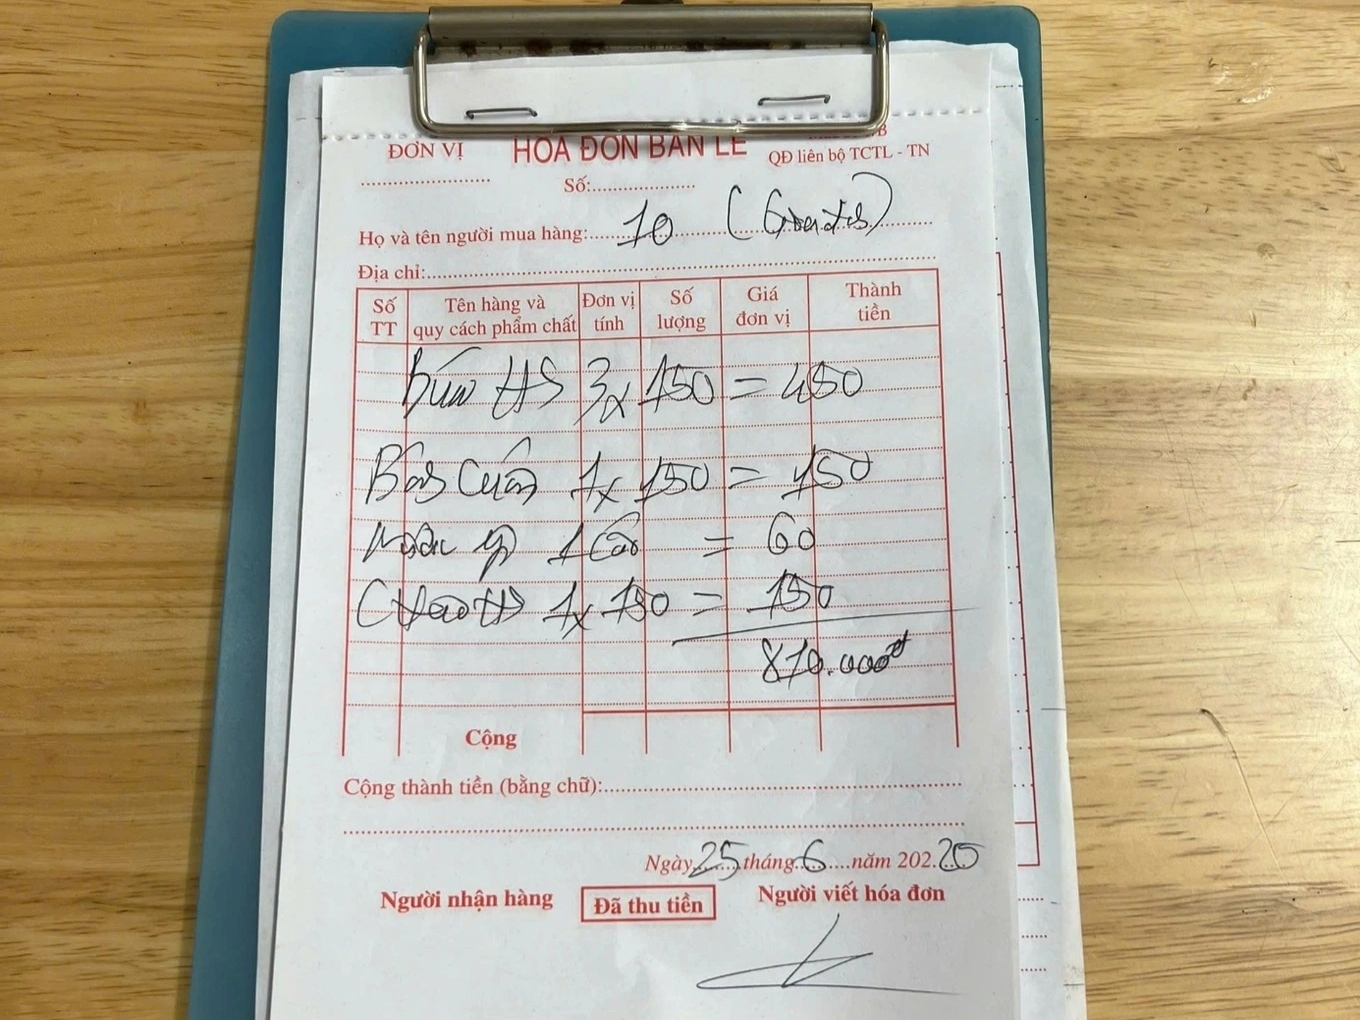 ĐƠN VỊ HÓA ĐƠN BÁN LẺ
QĐ liên bộ TCTL - TN
Số:
Họ và tên người mua hàng: 10
Địa chỉ:
Số TT Tên hàng và quy cách phẩm chất Đơn vị tính Số lượng Giá đơn vị Thành tiền
Bún HS 3x 150 = 450
Bánh Cuốn 1x 150 = 150
1 = 60
Cháo HS 1x 150 = 150
810.000đ
Cộng
Cộng thành tiền (bằng chữ):
Ngày 25 tháng 6 năm 202.20
Người nhận hàng Đã thu tiền Người viết hóa đơn